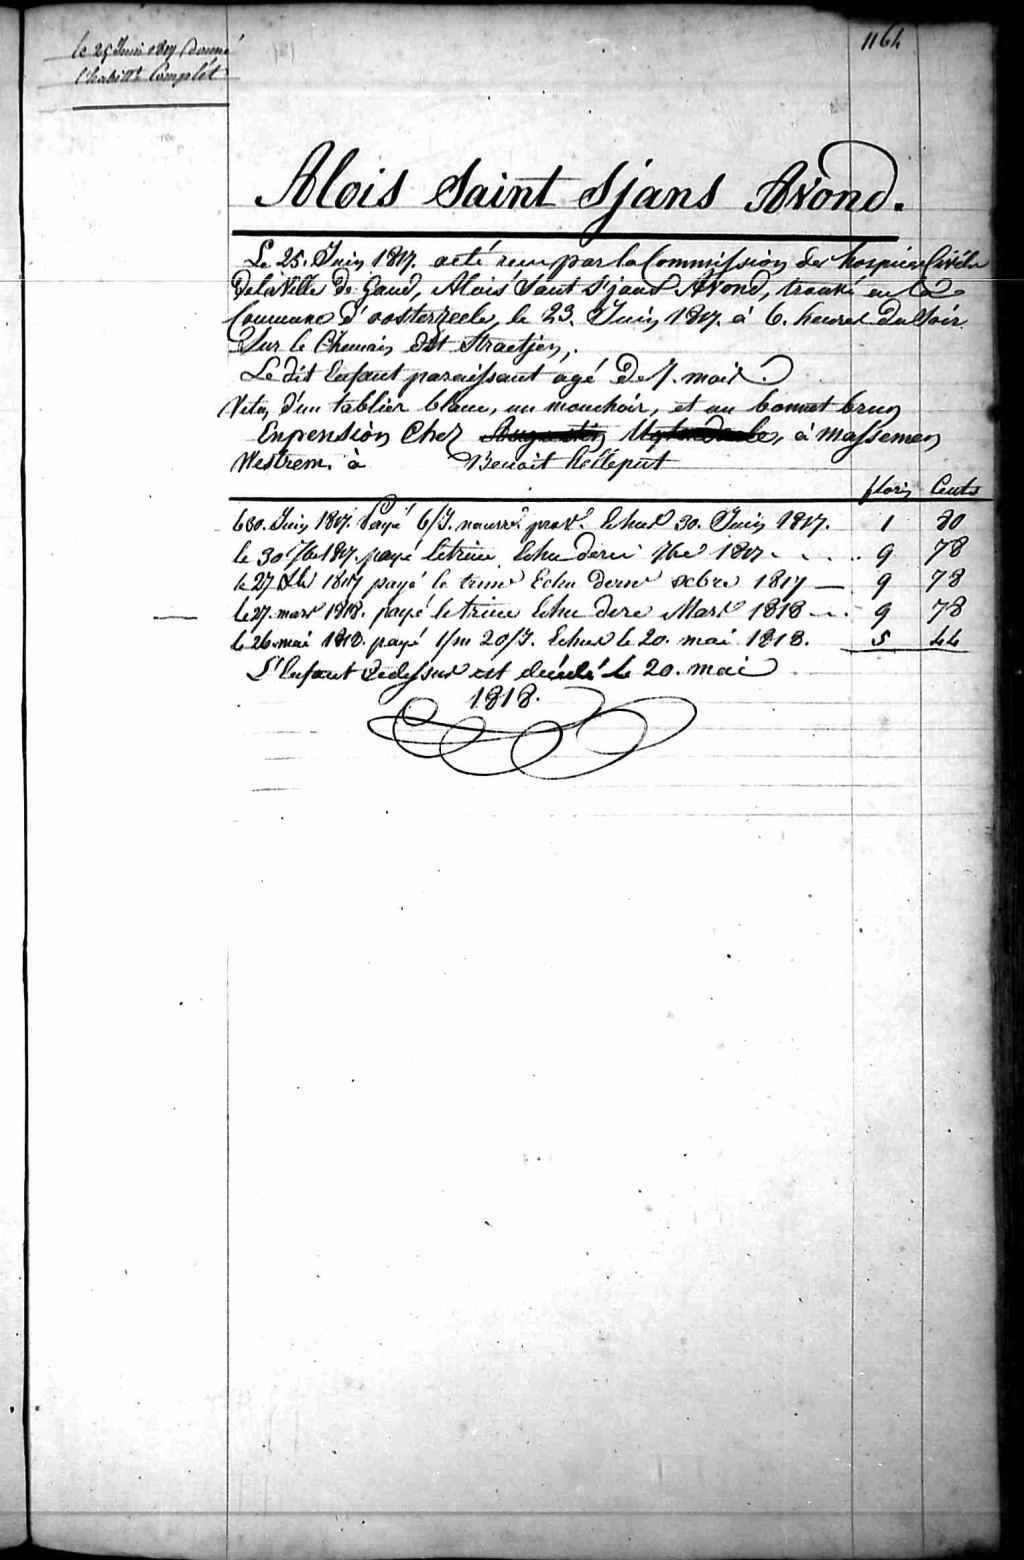 le 25 Juin 1817 donné
l'habillt Complèt
1164
Alois Saint Sjans Avond.
Le 25. Juin 1817. a été reçu par la Commission des hospices Civils
de la Ville de Gand, Alois Saint S'jans Avond, trouvé en la
Commune d'oosterzeele, le 23. Juin 1817. à 6. heures du Soir
Sur le Chemin dit Straetjen,
Le dit Enfant paraissant agé De mois.
Vetu, d'un tablier bleue, un mouchoir, et un bonnet brun
En pension Chez Augustin, à Massemen
Westrem. à Benoit helleput
florin Cents
le 30. Juin 1817. Payé 6/J. nourre prove. Echus 30. Juin 1817. 1 80
le 30 7bre 1817. payé le trim Echu dernr 7bre 1817 9 78
le 27 Xbr 1817 payé le trime Echu dernr xcbre 1817 — 9 78
le 27. mars 1818. payé le trime Echu dere Mars 1818 9 78
le 26. mai 1818. payé 1/m 20/J. Echus le 20. mai 1818. 5 44
L'Enfant Cidessus est décédé le 20. mai
1818.